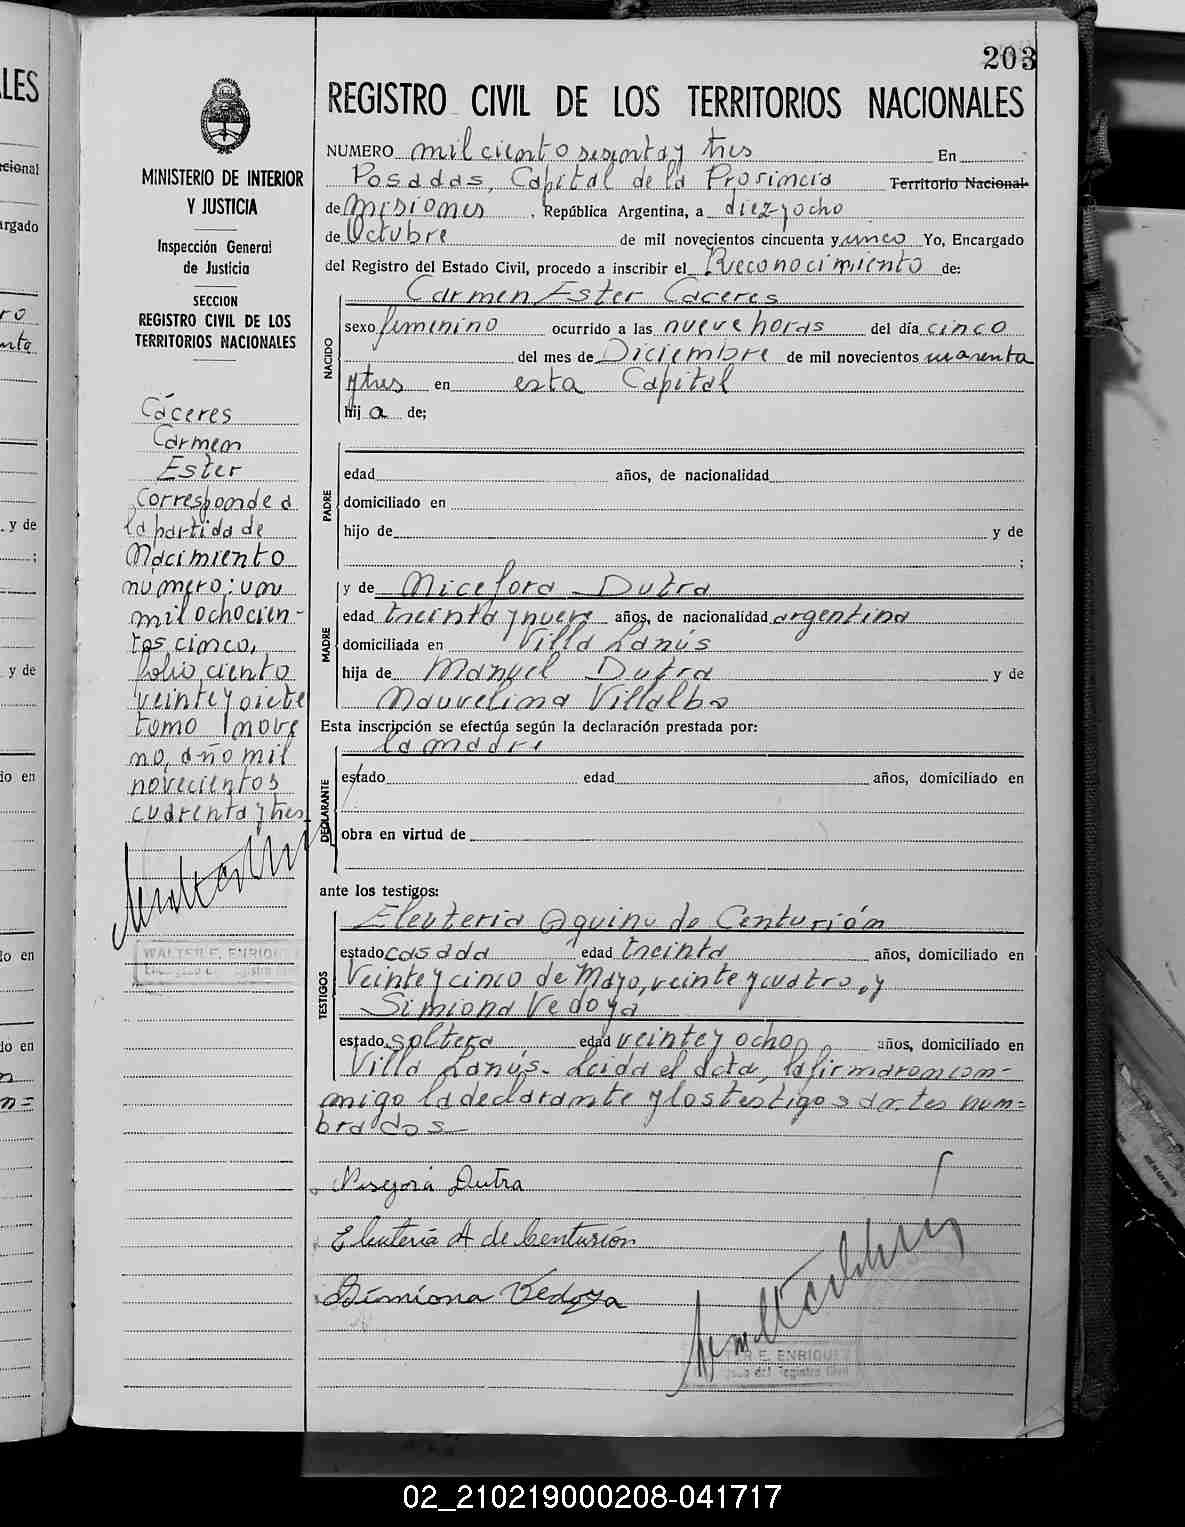 203
REGISTRO CIVIL DE LOS TERRITORIOS NACIONALES
MINISTERIO DE INTERIOR
Y JUSTICIA
Inspección General
de Justicia
SECCION
REGISTRO CIVIL DE LOS
TERRITORIOS NACIONALES
Cáceres
Carmen
Ester
Corresponde a
la partida de
Nacimiento
numero: un
mil ochocien-
tos cinco,
folio ciento
veinte y siete
tomo nove
no, año mil
novecientos
cuarenta y tres
WALTER E. ENRIQU
NUMERO mil ciento sesenta y tres En
Posadas, Capital de la Provincia Territorio Nacional
de Misiones, República Argentina, a diez y ocho
de Octubre de mil novecientos cincuenta y unco Yo, Encargado
del Registro del Estado Civil, procedo a inscribir el Reconocimiento de:
Carmen Ester Caceres
NACIDO
sexo femenino ocurrido a las nueve horas del día cinco
del mes de Diciembre de mil novecientos cuarenta
y tres en esta Capital
hij a de;
PADRE
edad años, de nacionalidad
domiciliado en
hijo de y de
;
MADRE
y de Nicefora Dutra
edad treinta y nueve años, de nacionalidad argentina
domiciliada en Villa Lanús
hija de Manuel Dutra y de
Maurelina Villalba
Esta inscripción se efectúa según la declaración prestada por:
la madre
DECLARANTE
estado edad años, domiciliado en
obra en virtud de
ante los testigos:
TESTIGOS
Eleuteria Aquino de Centurión
estado casada edad treinta años, domiciliado en
Veinte y cinco de Mayo, veinte y cuatro, y
Simiona Vedoya
estado soltera edad veinte y ocho años, domiciliado en
Villa Lanús- Leida el acta, la firmaron con-
migo la declarante y los testigos antes nom=
brados
Dutra
Eleuteria A de Centurión
Simiona Vedoya
E. ENRIQUE
del Registro Civil
LES
cional
argado
y de
;
y de
do en
lo en
do en
02_210219000208-041717